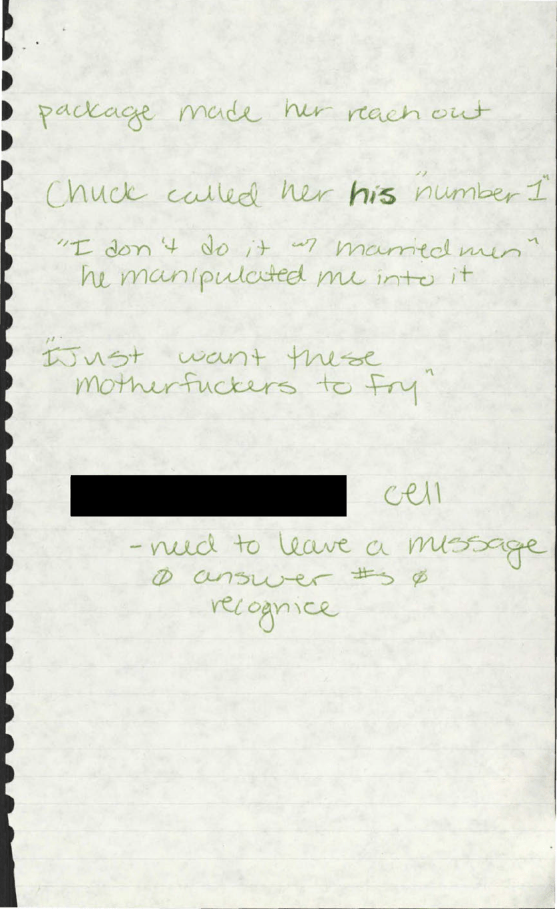 package made her reach out
Chuck called her his "number 1"
"I don't do it w/ married men"
he manipulated me into it
"I just want these
motherfuckers to fry"
cell
- need to leave a message
∅ answer #s ∅
recognice